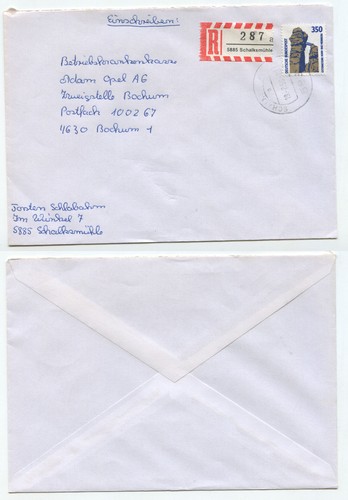 Einschreiben!
R 287 a
5885 Schalksmühle
350
DEUTSCHE BUNDESPOST
Betriebskrankenkasse
Adam Opel AG
Zweigstelle Bochum
Postfach 100267
4630 Bochum 1
Torsten Schlabahm
Im Winkel 7
5885 Schalksmühle